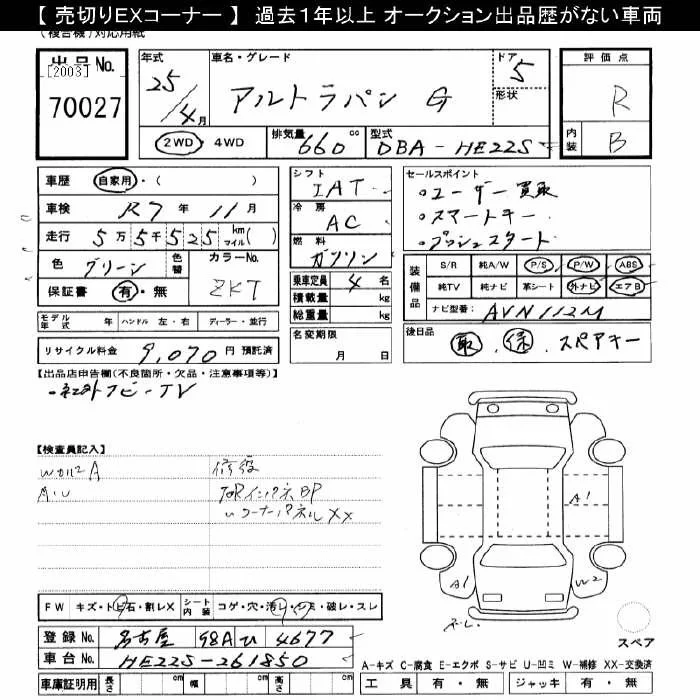 【 売切りEXコーナー 】 過去1年以上 オークション出品歴がない車両
(複合機)対応用紙
出品 No. [2003] 70027
年式 25/4月
車名・グレード アルトラパン G
ドア 5 形状
2WD ・ 4WD 排気量 660 cc 型式 DBA-HE22S
評価点 R
内装 B
車歴 自家用・( )
車検 R7 年 11 月
走行 5万5千525 km マイル( )
色 グリーン 色替 カラーNo. ZKT
保証書 有・無
モデル年式 年 ハンドル 左・右 ディーラー・並行
リサイクル料金 9,070 円 預託済
シフト IAT
冷房 AC
燃料 ガソリン
乗車定員 4 名
積載量 kg
総重量 kg
名変期限 月 日
セールスポイント
・ユーザー買取
・スマートキー
・プッシュスタート
装備品 S/R 純A/W P/S P/W ABS
純TV 純ナビ 革シート 外ナビ エアB
ナビ型番: AVN112M
後日品 取 保 スペアキー
【出品店申告欄(不良箇所・欠品・注意事項等)】
・社外ナビ-TV
【検査員記入】
A1 A1 W2
F W キズ・トビ石・割レX シート内装 コゲ・穴・汚レ・シミ・破レ・スレ
登録 No. 名古屋 98A ひ 4677
車台 No. HE22S-261850
車庫証明用 長さ cm 幅 cm 高さ cm
スペア
A-キズ C-腐食 E-エクボ S-サビ U-凹ミ W-補修 XX-交換済
工具 有・無 ジャッキ 有・無